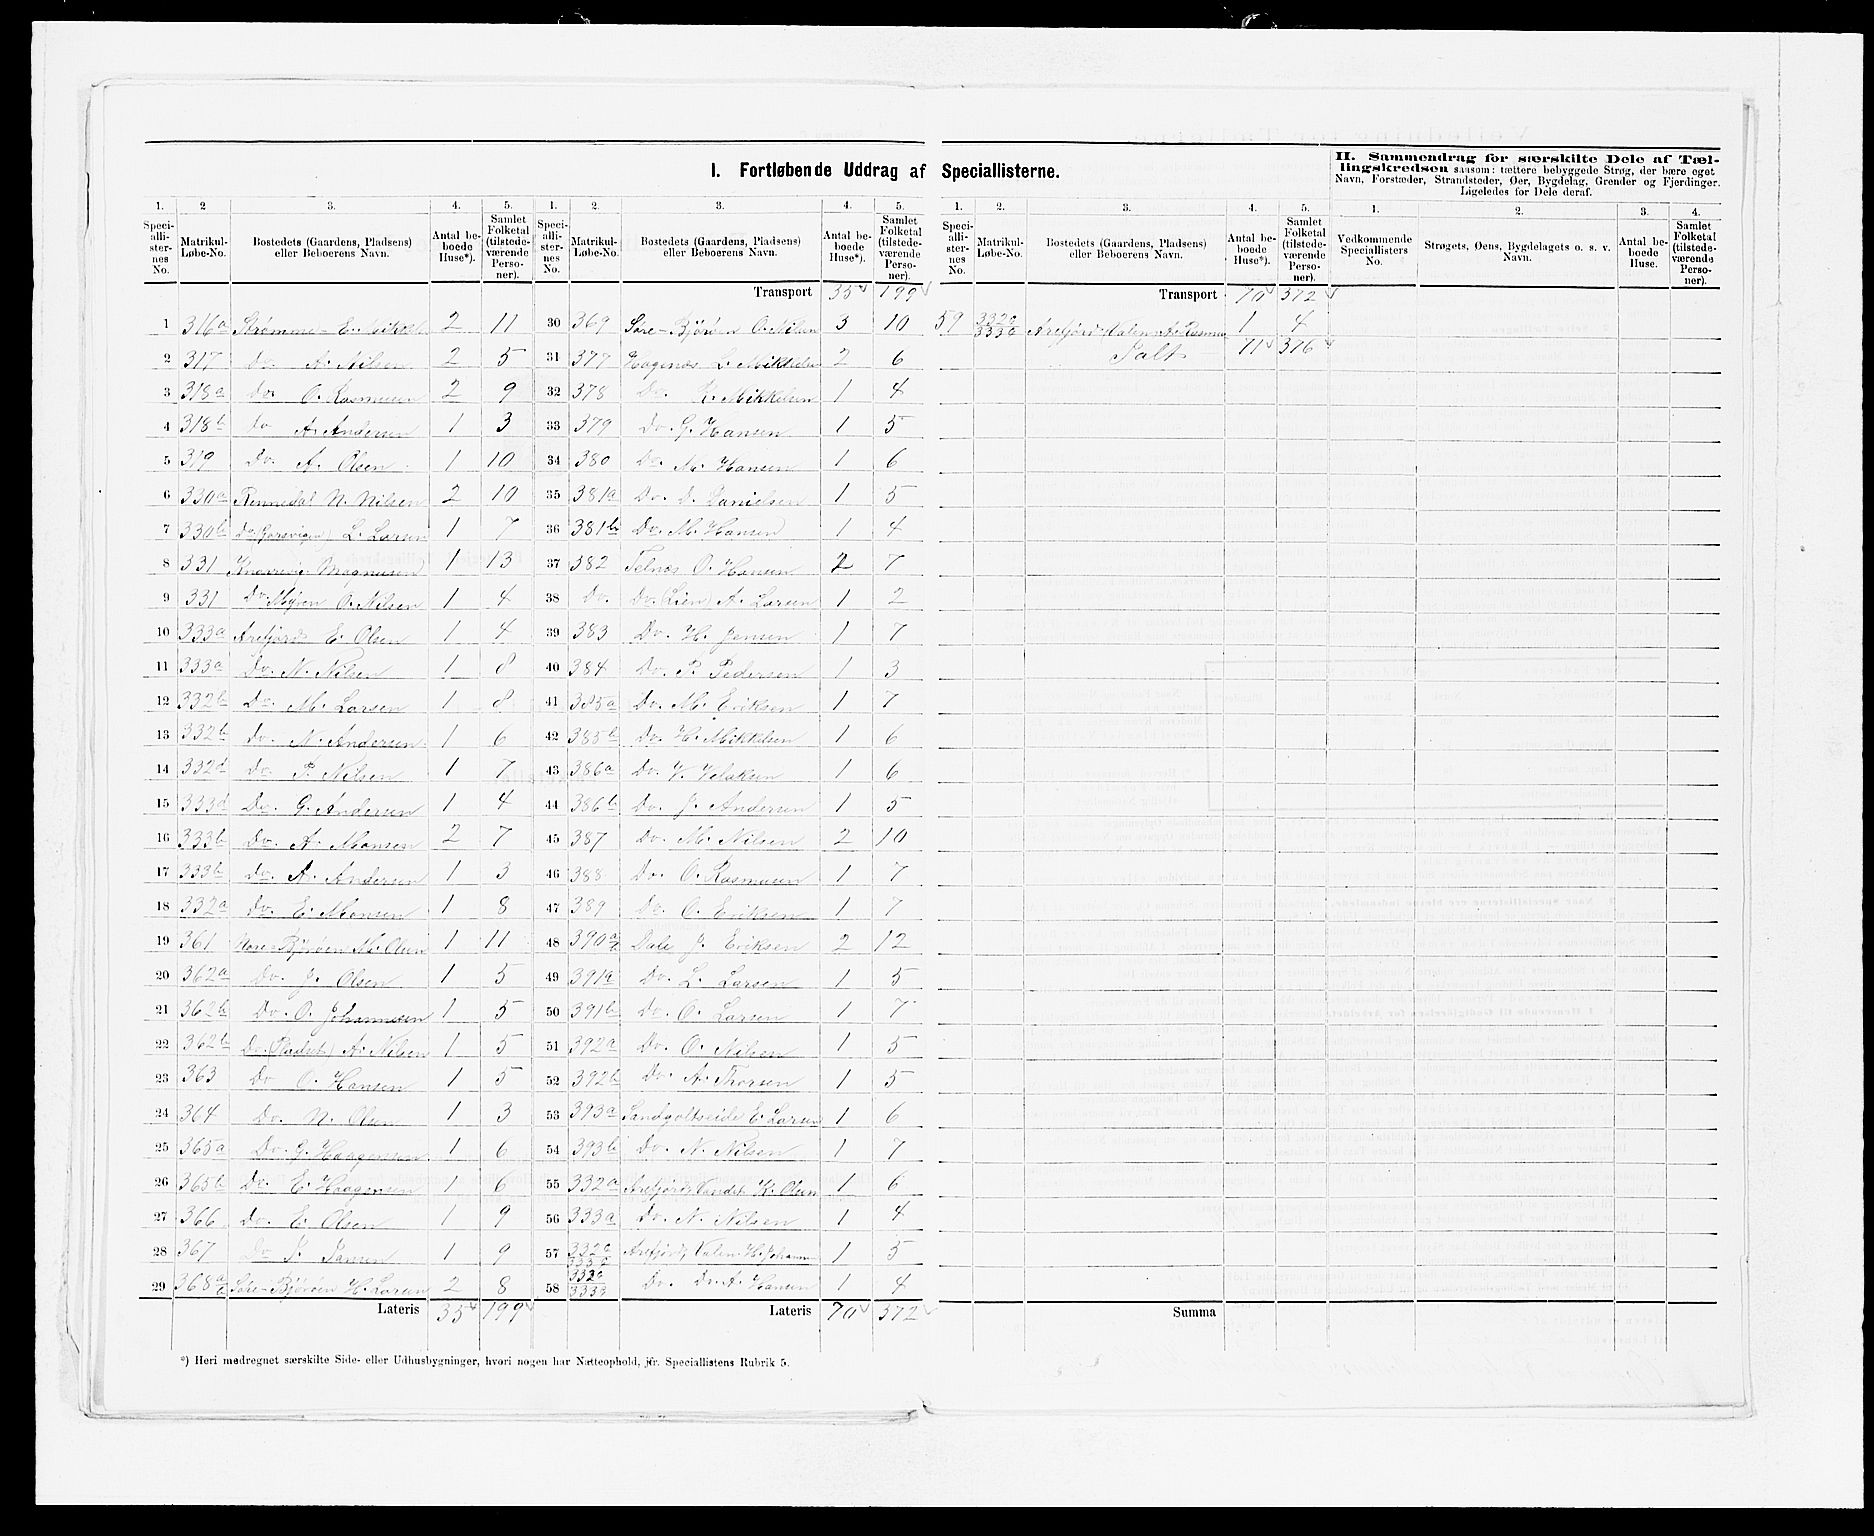 I. Fortløbende Uddrag af Speciallisterne.
II. Sammendrag for særskilte Dele af Tæl-
lingskredsen saasom: tættere bebyggede Strøg, der bære eget
Navn, Forstæder, Strandsteder, Øer, Bygdelag, Grender og Fjerdinger.
Ligeledes for Dele deraf.
1. 2 3. 4. 5. 1. 2. 3. 4. 5. 1. 2. 3. 4. 5. 1. 2. 3. 4.
Speci-alli-ster-nes No. Matrikul-Løbe-No. Bostedets (Gaardens, Pladsens) eller Beboerens Navn. Antal be-boede Huse*). Samlet Folketal (tilstede-værende Perso-ner).
Speci-alli-ster-nes No. Matrikul-Løbe-No. Bostedets (Gaardens, Pladsens) eller Beboerens Navn. Antal be-boede Huse*). Samlet Folketal (tilstede-værende Perso-ner).
Speci-alli-ster-nes No. Matrikul-Løbe-No. Bostedets (Gaardens, Pladsens) eller Beboerens Navn. Antal be-boede Huse*). Samlet Folketal (tilstede-værende Perso-ner).
Vedkommende Speciallisters No. Strøgets, Øens, Bygdelagets o. s. v. Navn. Antal be-boede Huse. Samlet Folketal (tilstede-værende Perso-ner).
1 316a Strømme E. Mikkl. 2 11
2 317 Do. A. Nilsen 2 5
3 318a Do. O. Rasmusen 2 9
4 318b Do A. Andersen 1 3
5 319 Do. A. Olsen 1 10
6 330a Rennedal N. Nilsen 2 10
7 330b Do L. Larsen 1 7
8 331 Knarrevig Magnusen 1 13
9 331 Do. Myren O. Nilsen 1 4
10 333a Arefjord E. Olsen 1 4
11 333a Do. N. Nilsen 1 8
12 332b Do. M. Larsen 1 8
13 332b Do. N. Andersen 1 6
14 332d Do. P. Nilsen 1 7
15 333d Do. G. Andersen 1 4
16 333b Do. A. Monsen 2 7
17 333b Do. A. Andersen 1 3
18 332a Do. E. Monsen 1 8
19 361 Nore-Bjørøen M. Olsen 1 11
20 362a Do. J. Olsen 1 5
21 362b Do. O. Johannesen 1 5
22 362b Do. (Pladset) A. Nilsen 1 5
23 363 Do O. Hansen 1 5
24 364 Do. N. Olsen 1 3
25 365a Do. G. Haagensen 1 6
26 365b Do. E. Haagensen 1 6
27 366 Do. E. Olsen 1 9
28 367 Do J. Jansen 1 9
29 368a/b Søre-Bjørøen H. Larsen 2 8
Lateris 35 199
Transport 35 199
30 369 Søre-Bjørøen O. Nilsen 3 10
31 377 Hagenæs L. Mikkelsen 2 6
32 378 Do. K. Mikkelsen 1 4
33 379 Do. G. Hansen 1 5
34 380 Do. M. Hansen 1 6
35 381a Do. D. Danielsen 1 5
36 381b Do. M. Hansen 1 4
37 382 Telnæs O. Hansen 2 7
38 Do. Do. (Lien) A. Larsen 1 2
39 383 Do. H. Jensen 1 7
40 384 Do. P. Pedersen 1 3
41 385a Do. M. Eriksen 1 7
42 385b Do. H. Mikkelsen 1 6
43 386a Do. V. 1 6
44 386b Do. J. Andersen 1 5
45 387 Do. M. Nilsen 2 10
46 388 Do. O. Rasmusen 1 7
47 389 Do. O. Eriksen 1 7
48 390a/b Dale J. Eriksen 2 12
49 391a Do. L. Larsen 1 5
50 391b Do. O. Larsen 1 7
51 392a Do. O. Nilsen 1 5
52 392b Do. A. Thorsen 1 5
53 393a Sandgoltseide E. Larsen 1 6
54 393b Do. N. Nilsen 1 7
55 332a Arefjord, Vandet K. Olsen 1 6
56 333a Do. N. Nilsen 1 4
57 332a/333a Arefjord, Valen H. Johann 1 5
58 332a/333a Do. Do. A. Hansen 1 4
Lateris 70 372
Transport 70 372
59 332a/333a Arefjord (Valen) A. Rasmu 1 4
Talt 71 376
Summa
*) Heri medregnet særskilte Side- eller Udhusbygninger, hvori nogen har Natteophold, jfr. Speciallistens Rubrik 5.